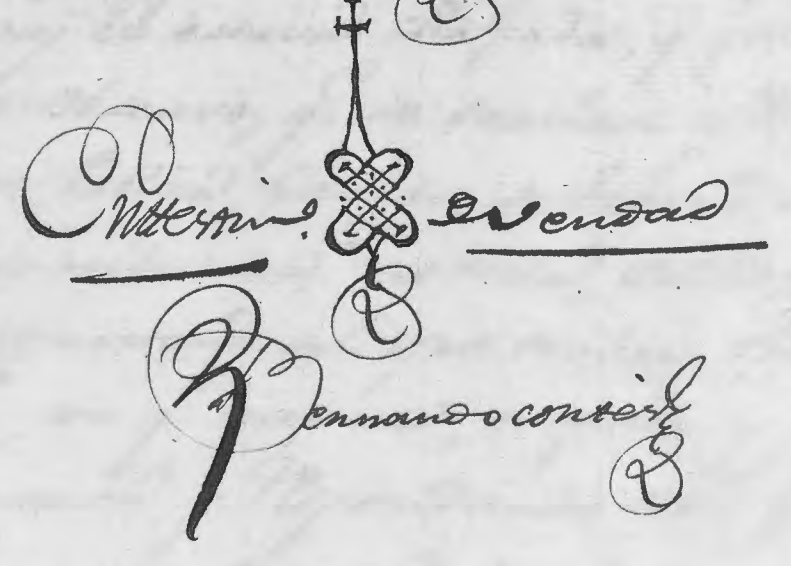 En testimº de verdad
Fernando cortes